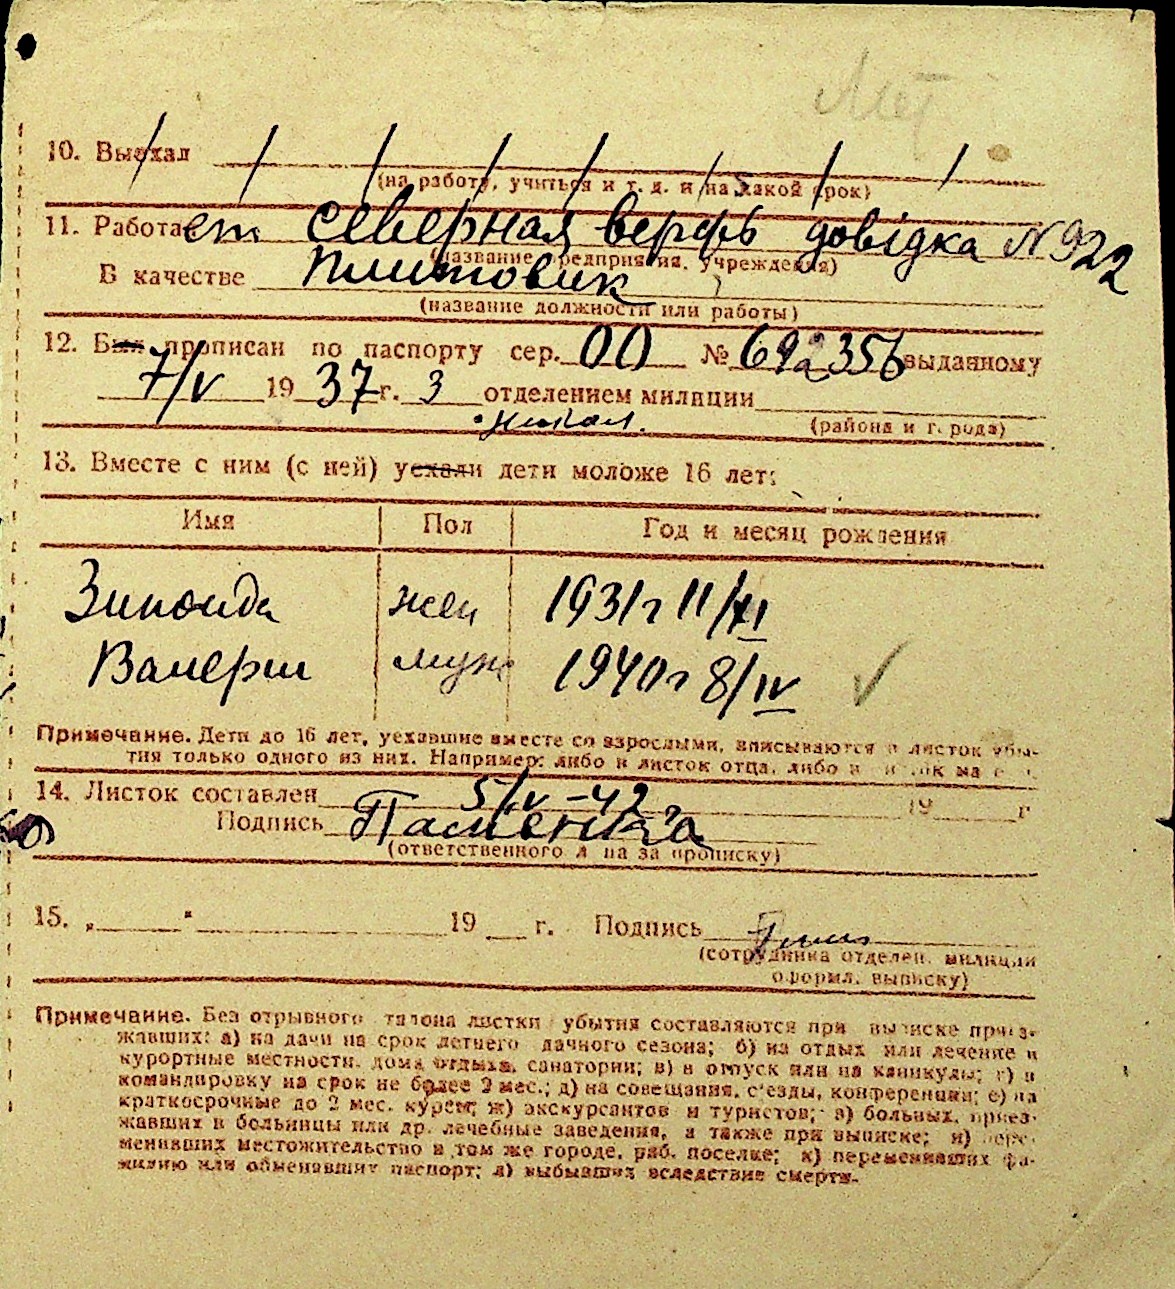 10. Выехал
(на работу, учиться и т. д. и на какой срок)
11. Работает Северная верфь довідка N 922
(название предприятия, учреждения)
В качестве плитовик
(название должности или работы)
12. Был прописан по паспорту сер. 00 № 692356 выданному
7/V 1937 г. 3 отделением милиции
(района и города)
13. Вместе с ним (с ней) уехали дети моложе 16 лет:
Имя Пол Год и месяц рождения
Зиноида жен 1931 г 11/XI
Валерии муж 1940 г 8/IV
Примечание. Дети до 16 лет, уехавшие вместе со взрослыми, вписываются в листок убы-
тия только одного из них. Например: либо в листок отца, либо в листок
14. Листок составлен 5/V-42 19 г
Подпись
(ответственного лица за прописку)
15. „ " 19 г. Подпись
(сотрудника отделен. милиции
оформл. выписку)
Примечание. Без отрывного талона листки убытия составляются при выписке приез-
жавших: а) на дачи на срок летнего дачного сезона; б) на отдых или лечение в
курортные местности, дома отдыха, санатории; в) в отпуск или на каникулы; г) в
командировку на срок не более 2 мес.; д) на совещания, съезды, конференции; е) на
краткосрочные до 2 мес. курсы; ж) экскурсантов и туристов; з) больных, приез-
жавших в больницы или др. лечебные заведения, а также при выписке; и) пере-
менивших местожительство в том же городе, раб. поселке; к) переменивших фа-
милию или обменявших паспорт; л) выбывших вследствие смерти.